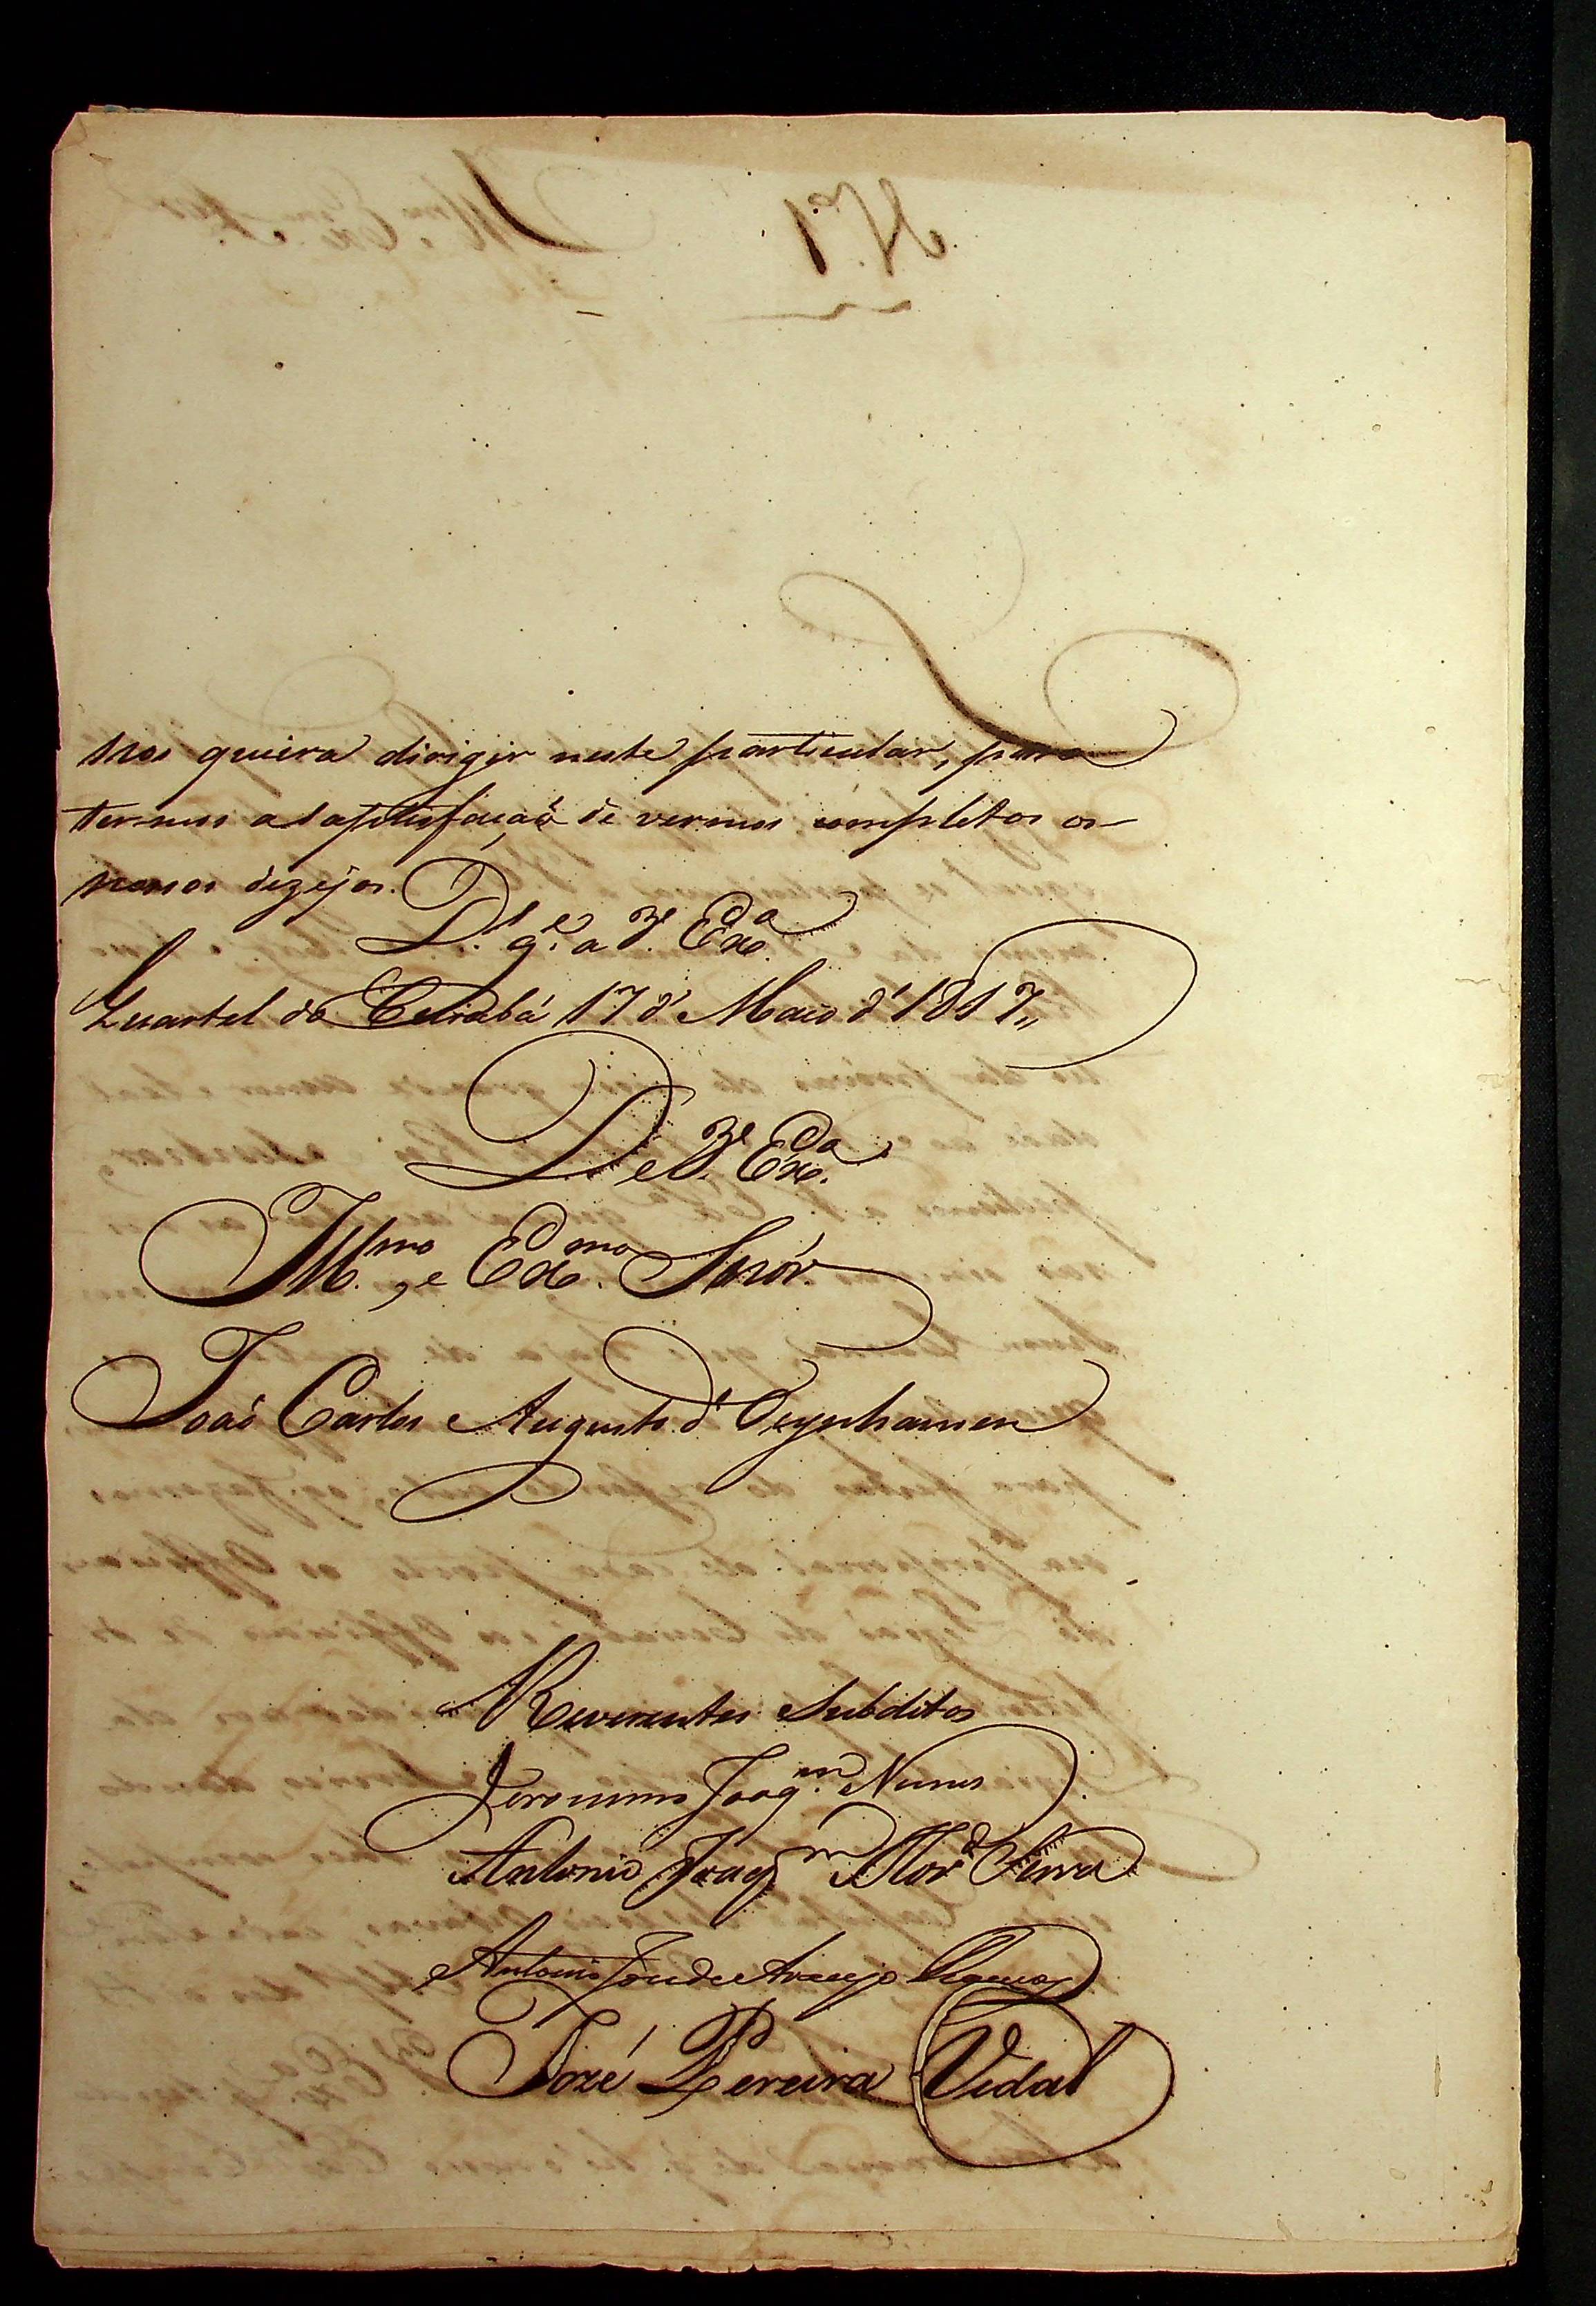 nos queira dirigir neste particular, para
termos a satisfacaõ de vermos completos os
nossos dezejos.
D.s g.e a V.e Ex.a
Quartel do Cuiabá 17 d' Maio d' 1817,,
De V.e Ex.a
Ill.mo, e Ex.mo Snór.
Joaõ Carlos Augusto d' Oeynhausen
Reverentes Subditos
Jeronimo Joaq.m Nunes
Antonio Joaq.m
Antonio Joze de Araujo
Jozé Pereira Vidal